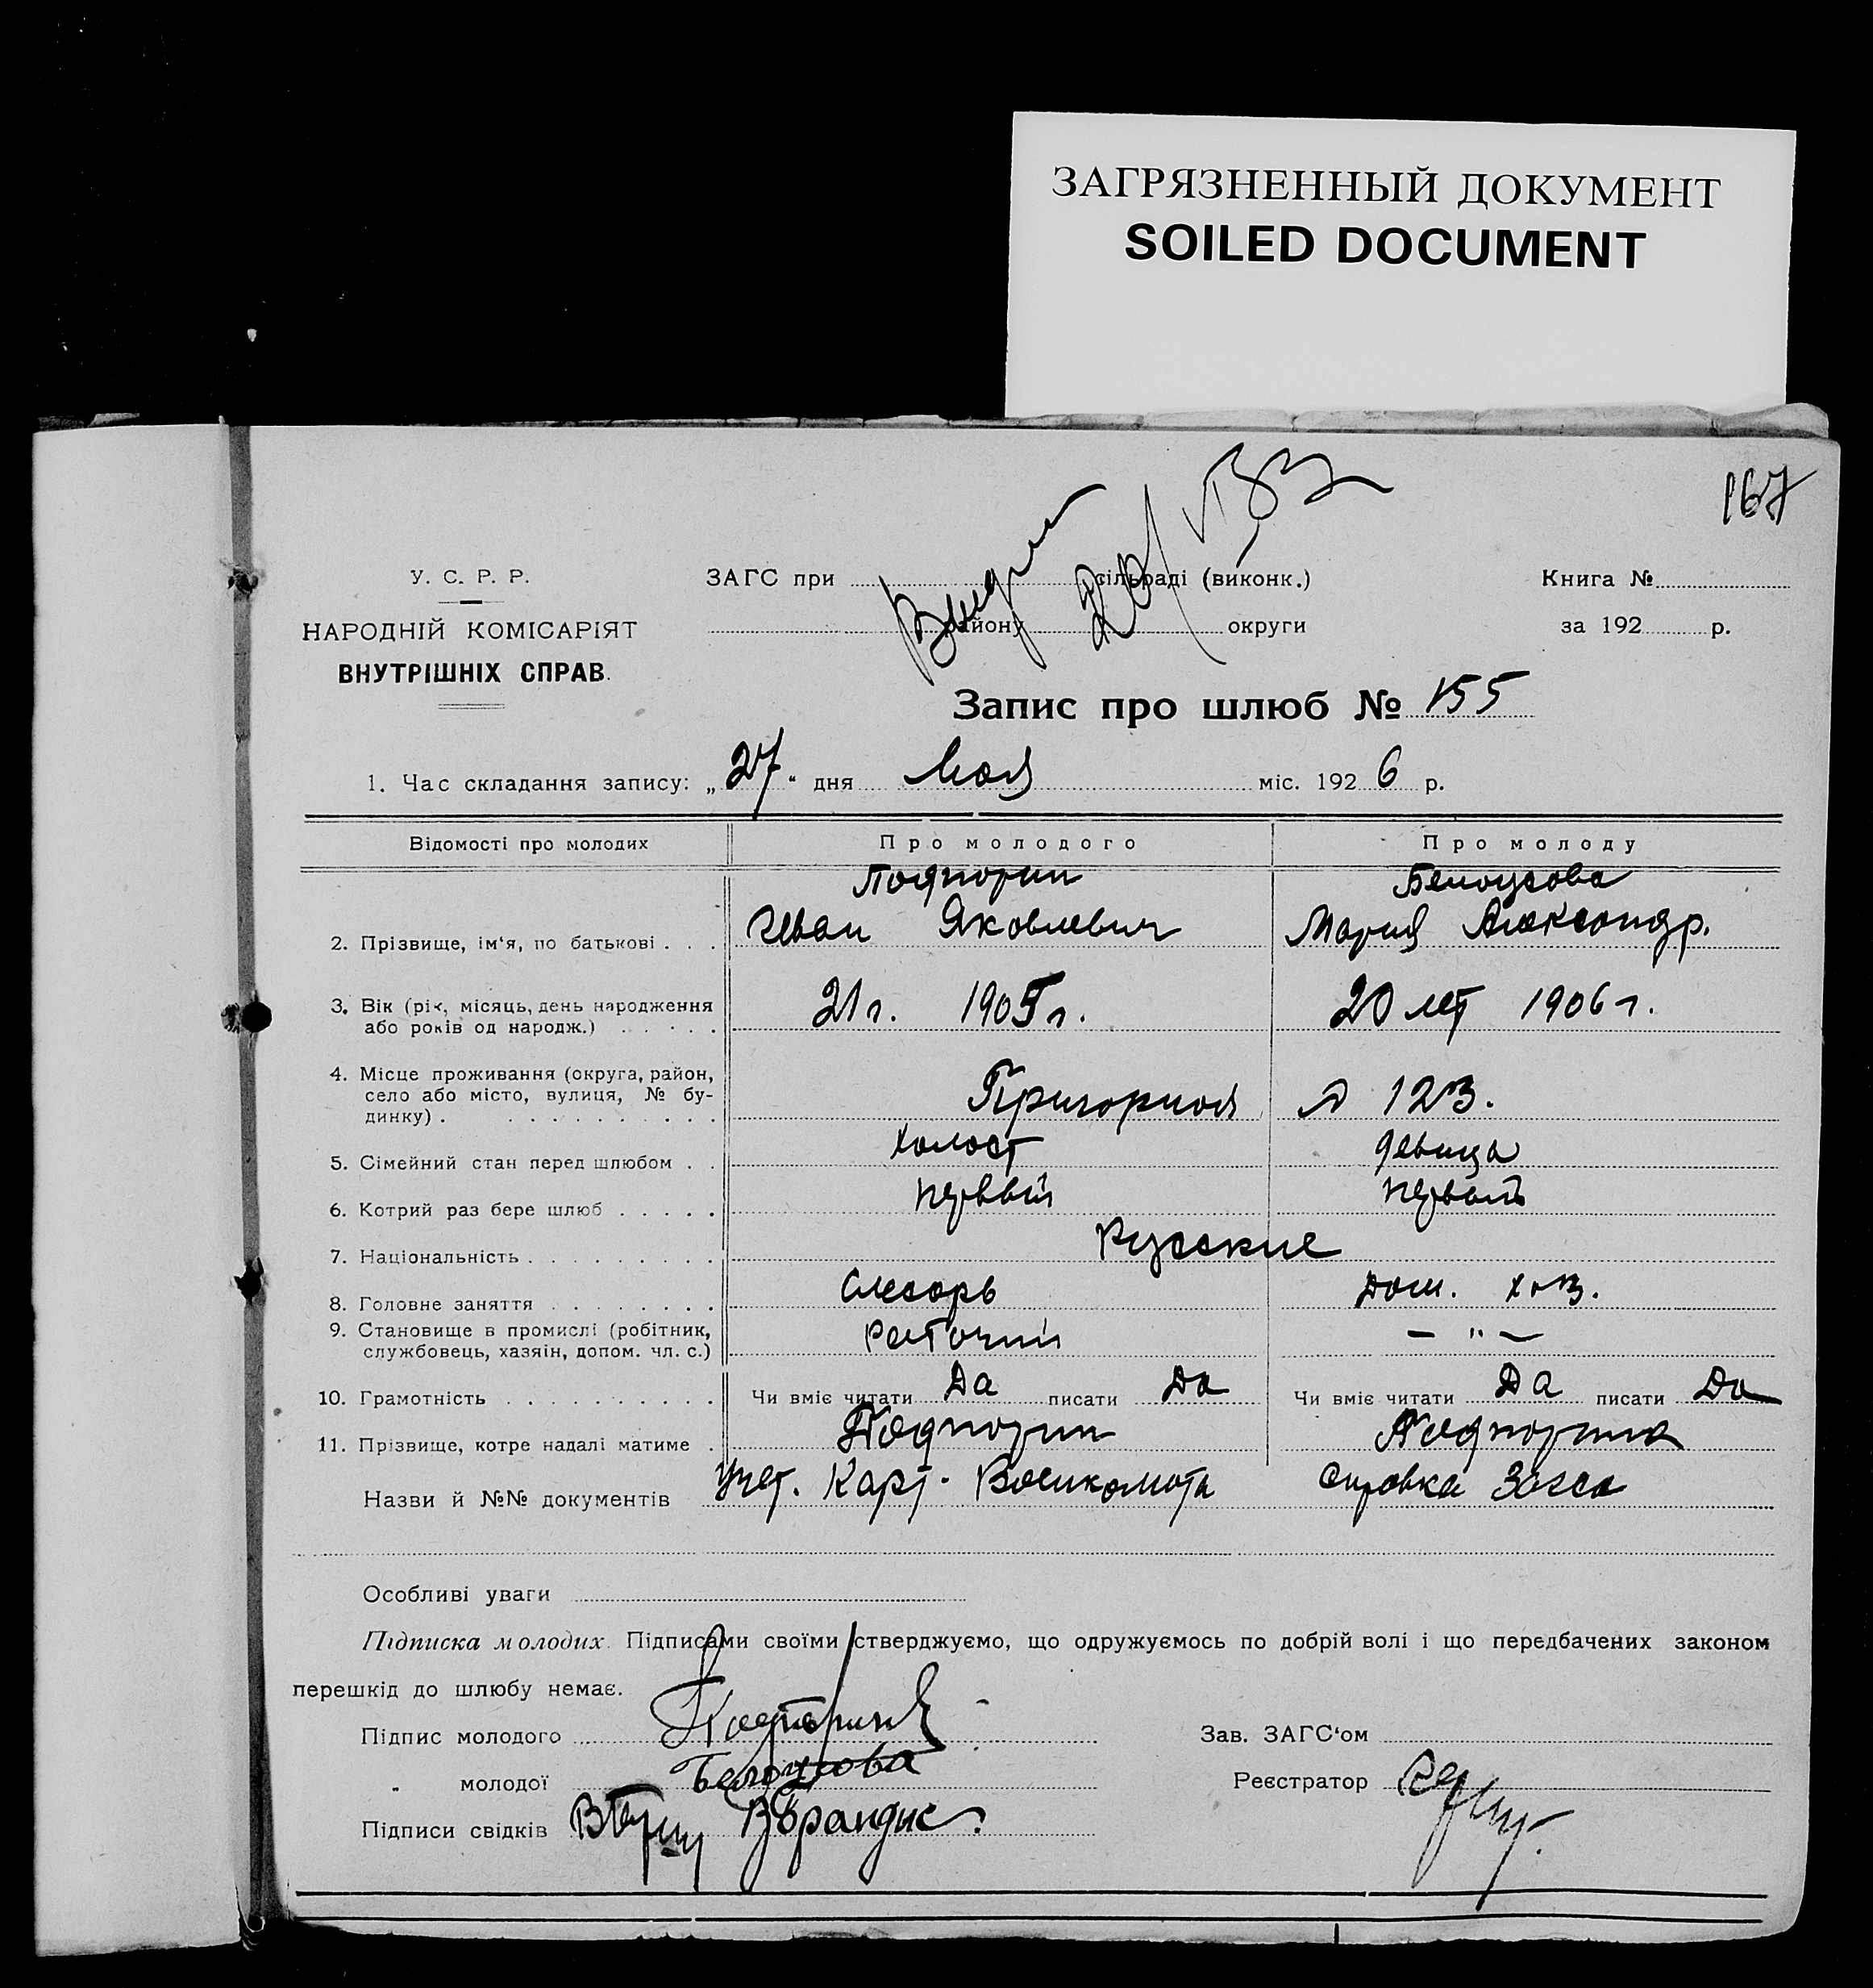 ЗАГРЯЗНЕННЫЙ ДОКУМЕНТ
SOILED DOCUMENT
167
У. С. Р. Р.
НАРОДНІЙ КОМІСАРІЯТ
ВНУТРІШНІХ СПРАВ.
ЗАГС при сільраді (виконк.)
району округи
Книга №
за 192 р.
Запис про шлюб № 155
1. Час складання запису: „27“ дня Мая міс. 1926 р.
Відомості про молодих Про молодого Про молоду
Подпорин Белоусова
2. Прізвище, ім‘я, по батькові . . . Иван Яковлевич Мария Александр.
3. Вік (рік, місяць, день народження
або років од народж.) . . . . . 21 г. 1905 г. 20 лет 1906 г.
4. Місце проживання (округа, район,
село або місто, вулиця, № бу-
динку) . . . . . . . . . . Пригорная д 123.
5. Сімейний стан перед шлюбом . . холост девица
6. Котрий раз бере шлюб . . . . . первый первый
7. Національність . . . . . . . . . Русские
8. Головне заняття . . . . . . . . Слесарь Дом. хоз.
9. Становище в промислі (робітник,
службовець, хазяін, допом. чл. с.) Рабочий — " —
10. Грамотність . . . . . . . . . . Чи вміє читати Да писати Да Чи вміє читати Да писати Да
11. Прізвище, котре надалі матиме . Подпорин Подпорина
Назви й №№ документів Учет. Карт. Военкомата Справка Загса
Особливі уваги
Підписка молодих. Підписами своїми стверджуємо, що одружуємось по добрій волі і що передбачених законом
перешкід до шлюбу немає.
Підпис молодого Подпорин
Зав. ЗАГС‘ом
„ молодої Белоусова
Реєстратор
Підписи свідків Брандис